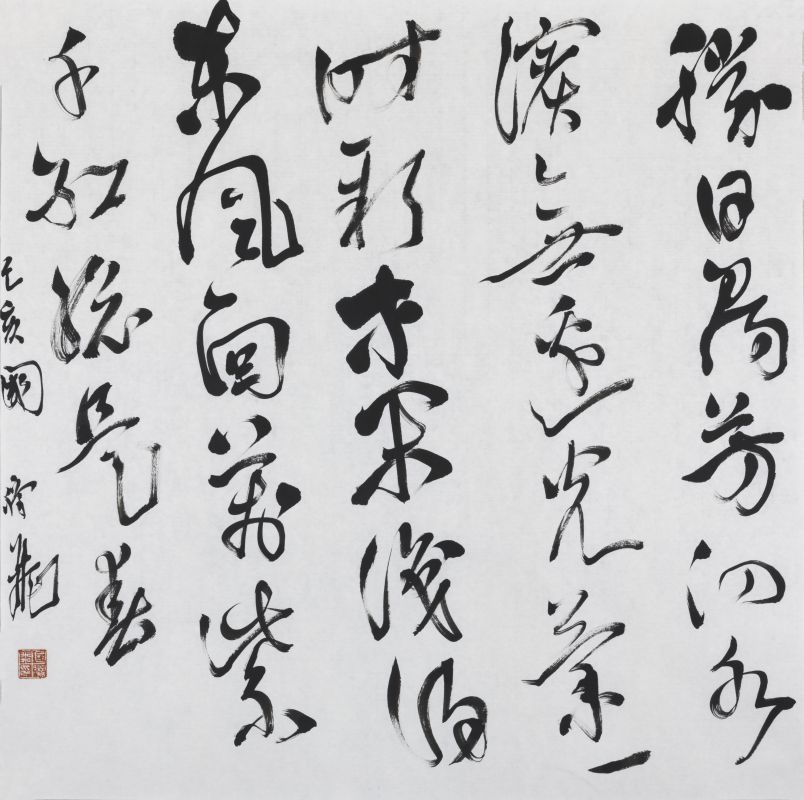 勝日尋芳泗水
濱無邊光景一
時新等閑識得
東風面萬紫
千紅總是春
己亥